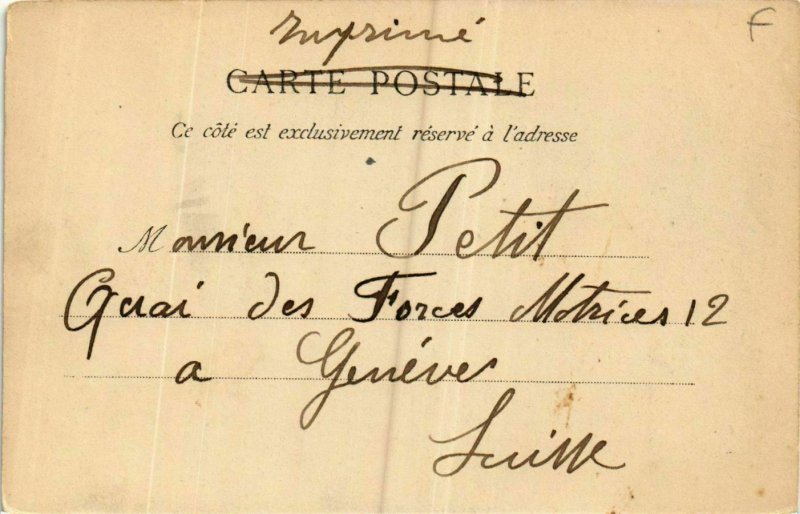 Imprimé
F
CARTE POSTALE
Ce côté est exclusivement réservé à l'adresse
Monsieur Petit
Quai des Forces Motrices 12
a Genéves
Suisse